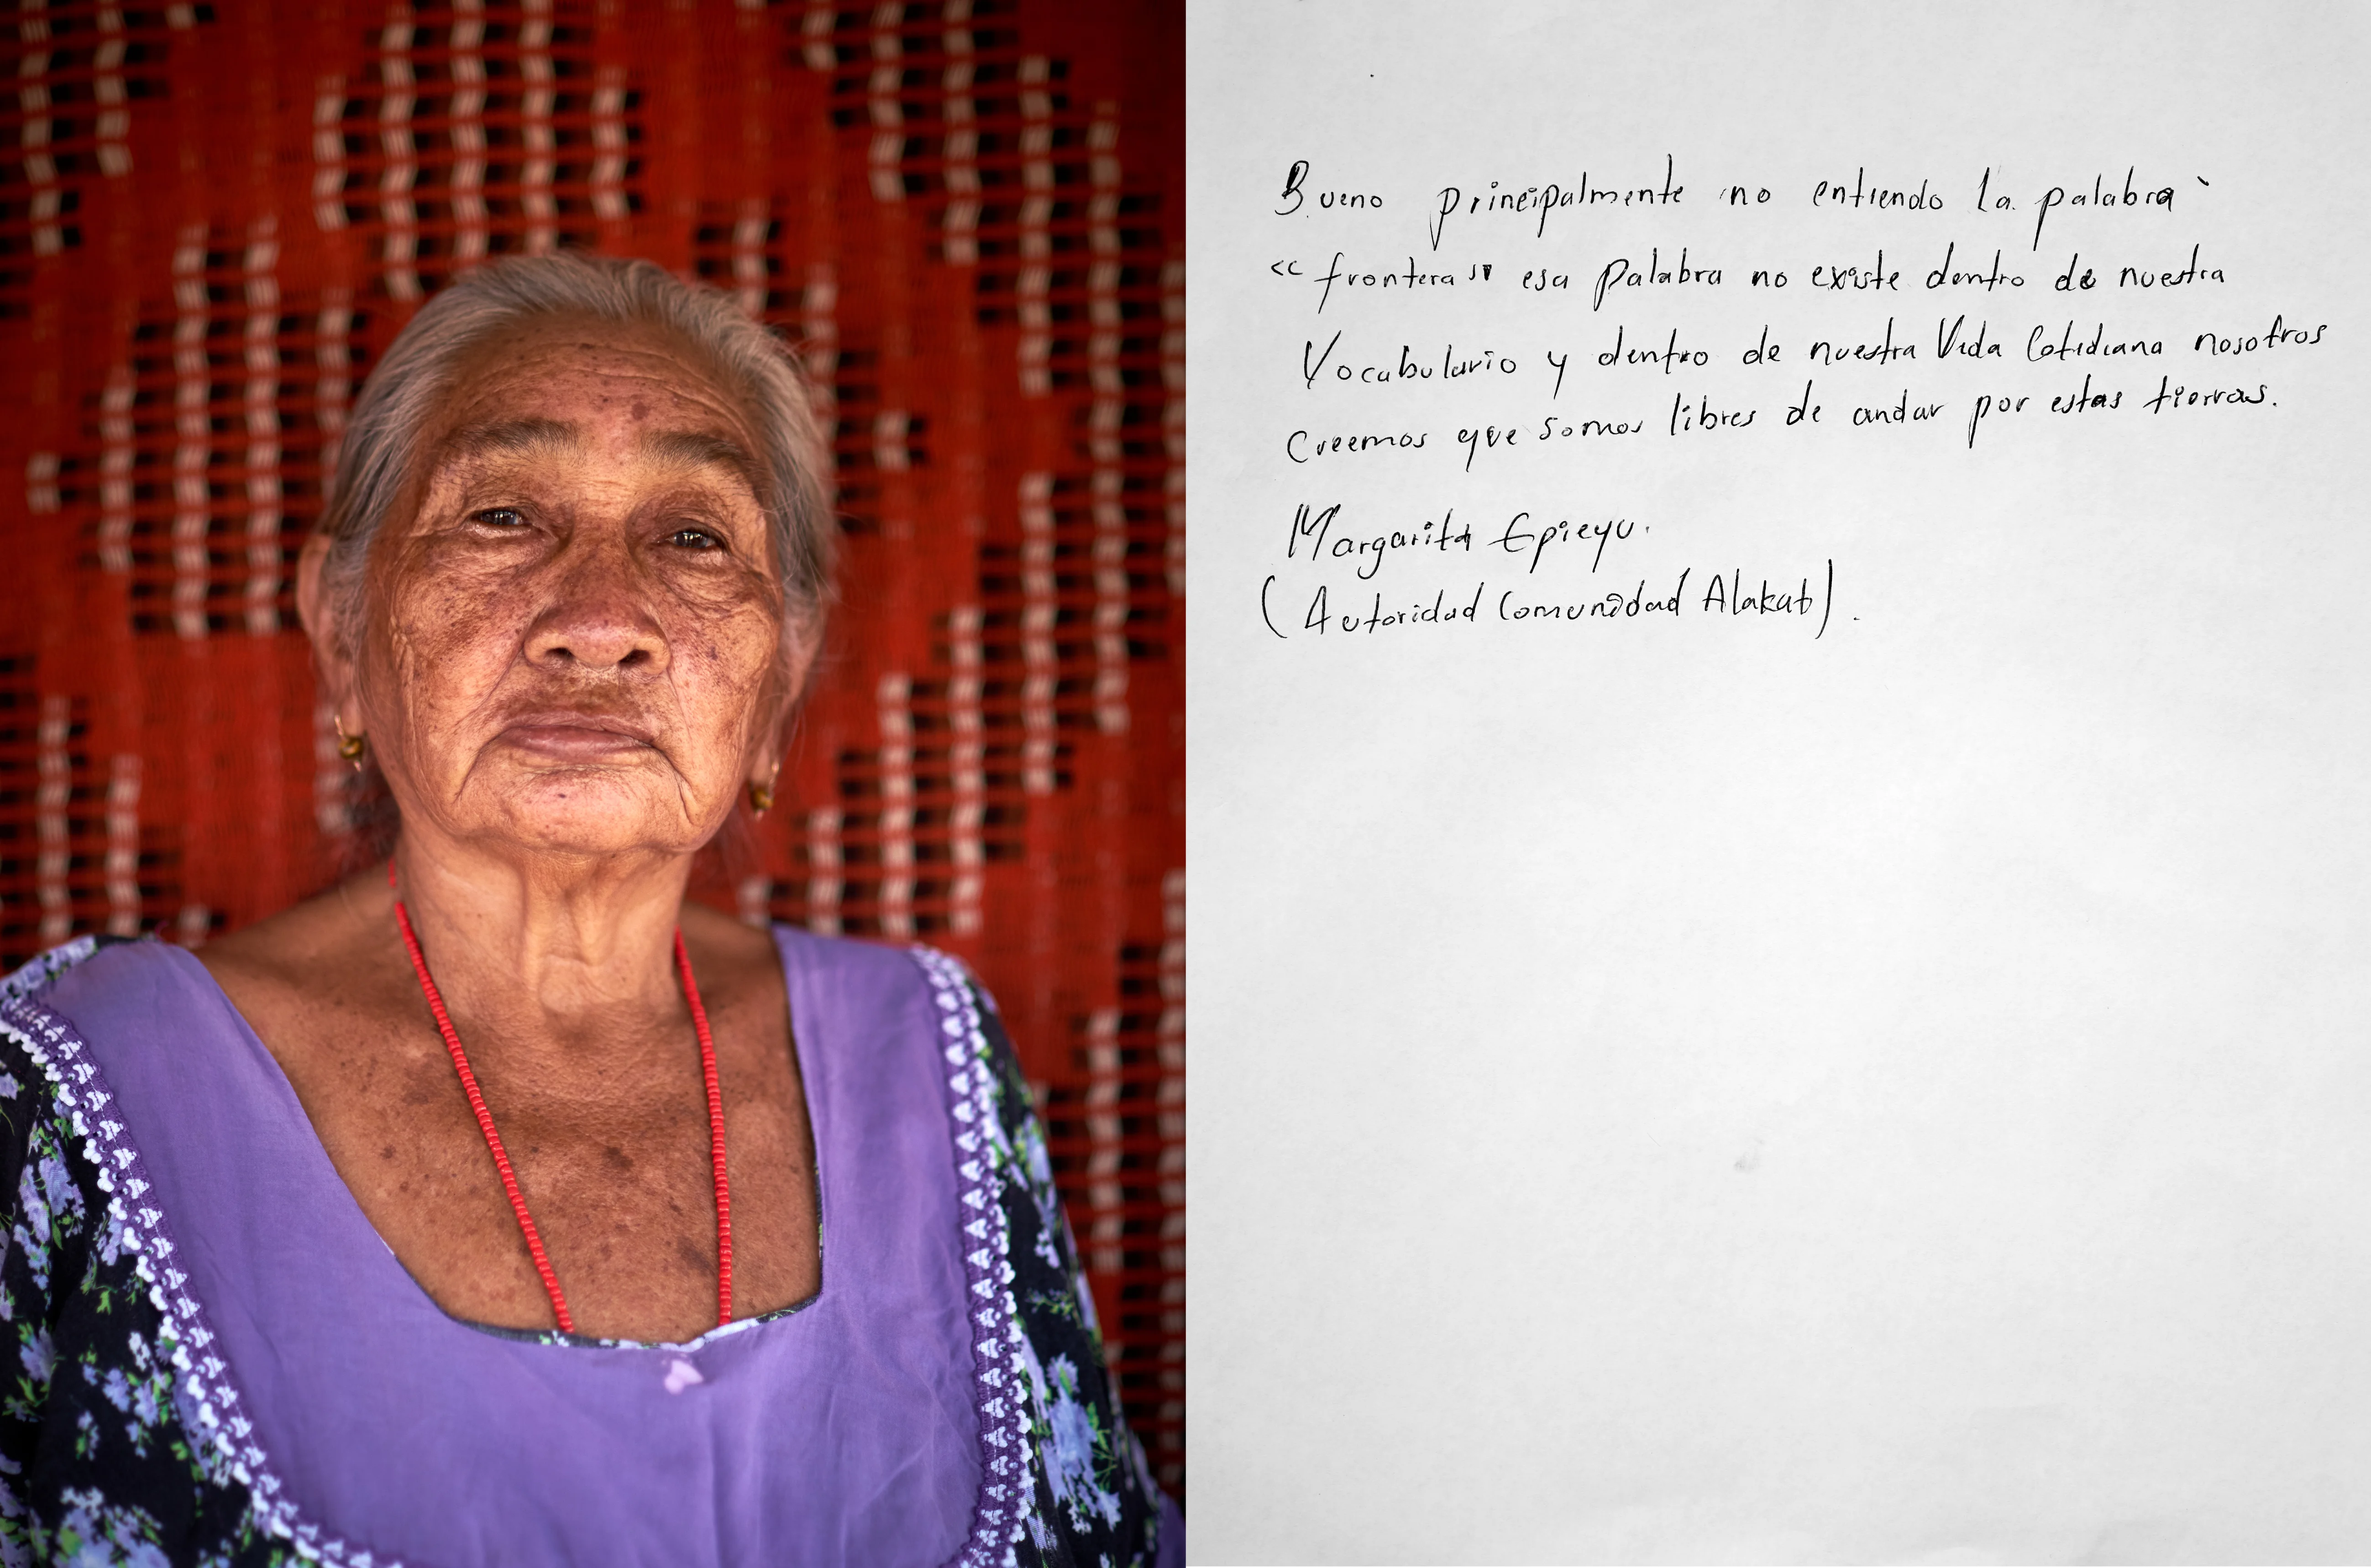 Bueno principalmente no entiendo la palabra
<<frontera>> esa palabra no existe dentro de nuestra
Vocabulario y dentro de nuestra Vida Cotidiana nosotros
Creemos que somos libres de andar por estas tierras.
Margarita Epieyu.
(Autoridad Comunidad Alakat).